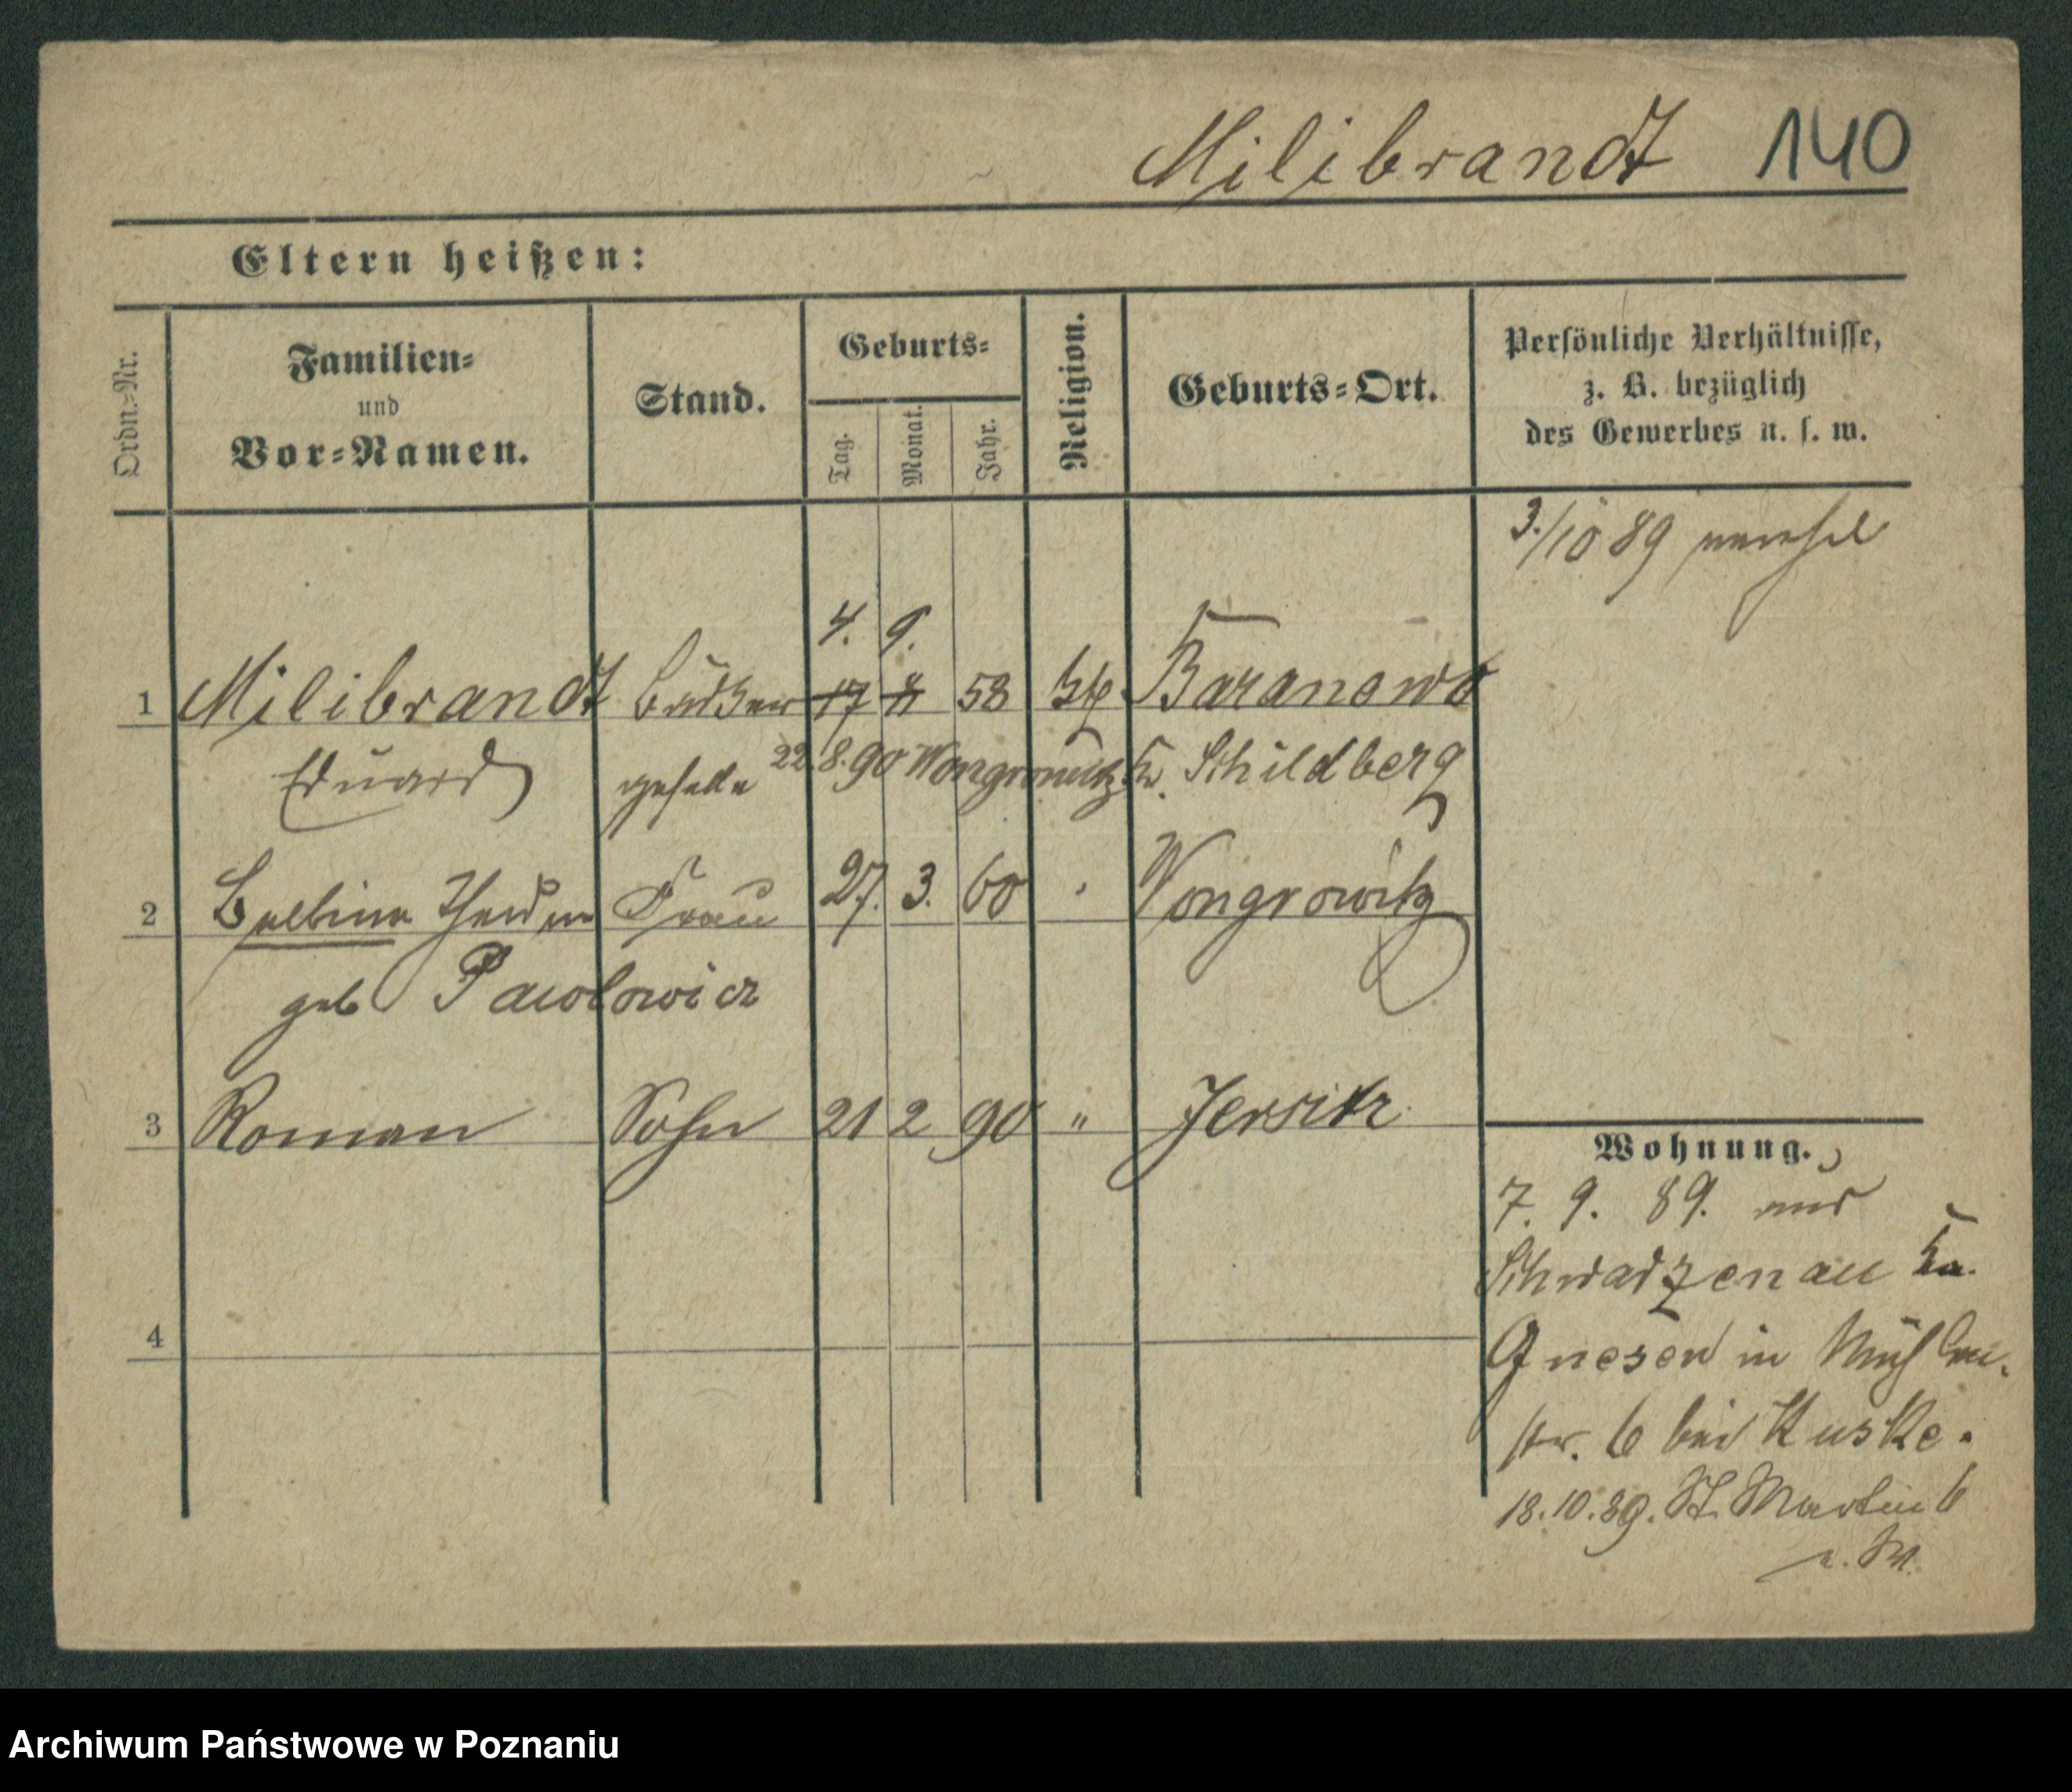 Milibrandt 140
Eltern heißen:
Ordn.-Nr.
Familien-
und
Vor-Namen.
Stand.
Geburts-
Tag.
Monat.
Jahr.
Religion.
Geburts-Ort.
Persönliche Verhältnisse,
z. B. bezüglich
des Gewerbes u. s. w.
3./10 89
4. 9.
1 Milibrandt 17 58 Baranowo
Eduard geselle 22.8.90 Wongrowitz Kr. Schildberg
2 Balbina Frau 27. 3. 60 Wongrowitz
geb Pawlowicz
3 Roman Sohn 21 2 90 " Jersitz
4
Wohnung.
7. 9. 89. aus
Schwarzenau Kr.
Gnesen in Mühlen-
str. 6 bei Kuske.
18.10.89. St. Martin 6
Archiwum Państwowe w Poznaniu